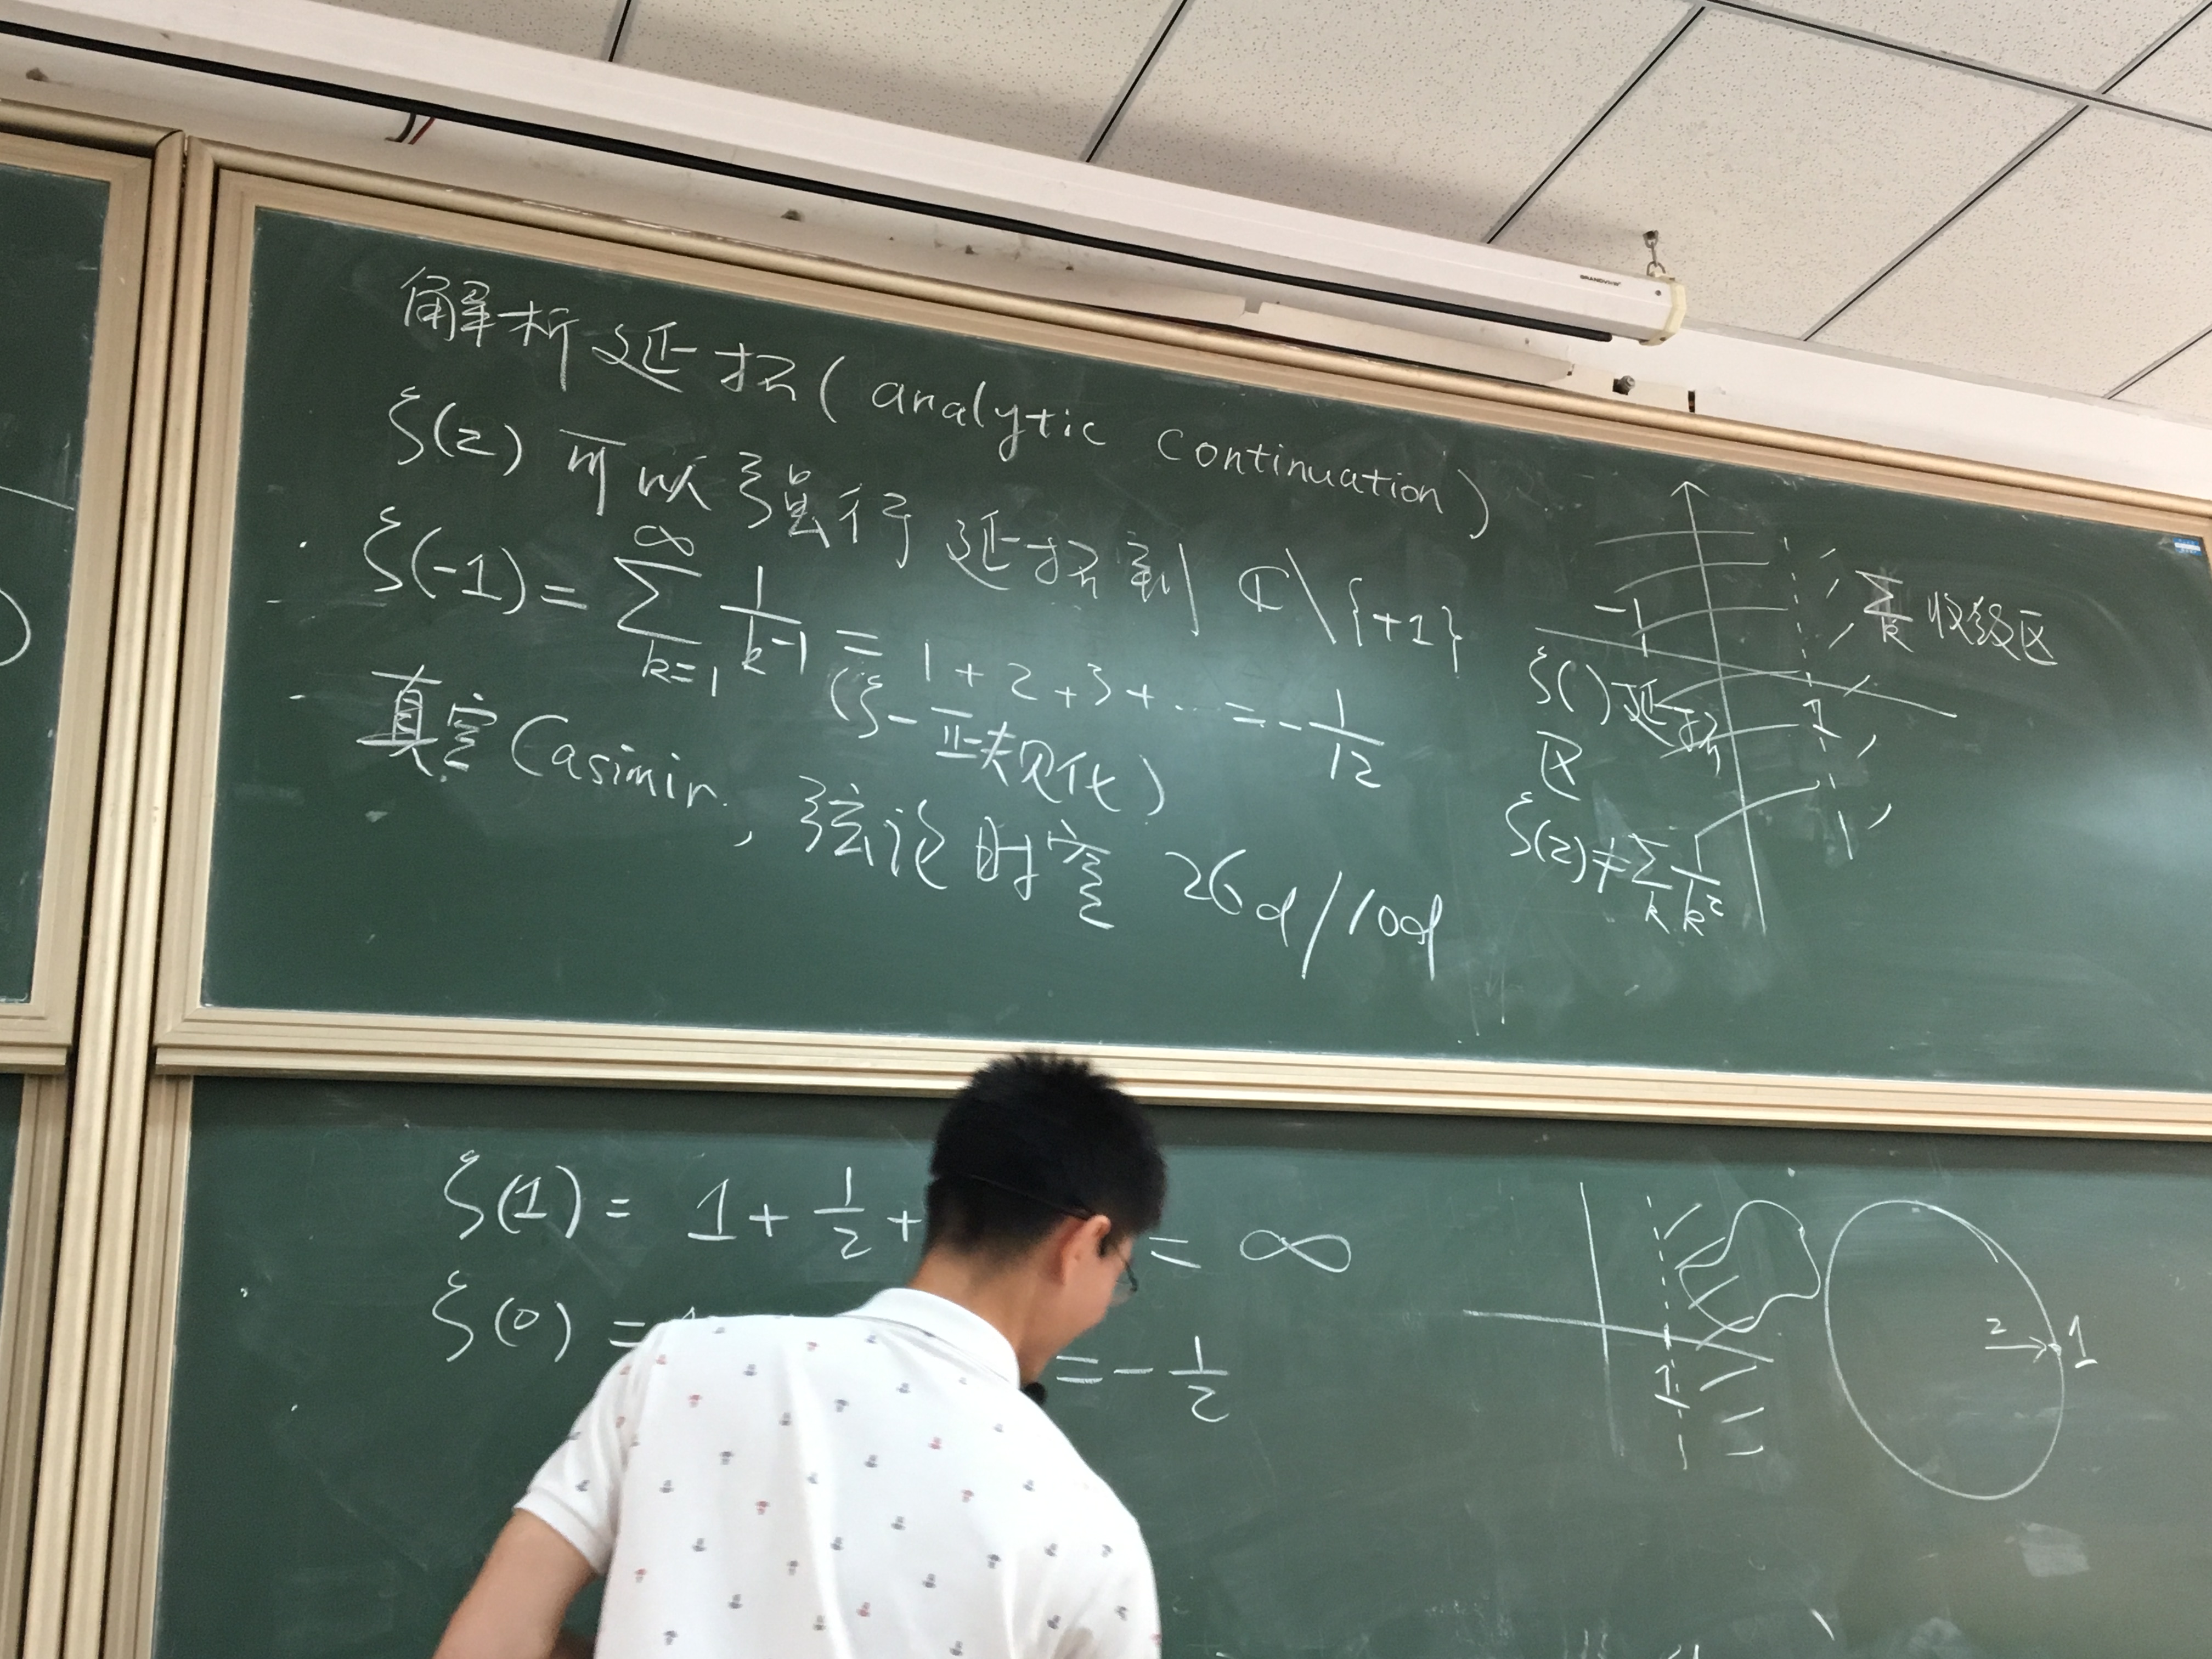 解析延拓(analytic continuation)
ζ(z) 可以强行延拓到 ℂ\{+1}
ζ(-1) = ∑_{k=1}^{∞} 1/k^{-1} = 1+2+3+... = -1/12
(ζ-正规化)
真空Casimir, 弦论时空 26d/10d
-1
∑_k 收敛区
ζ()延拓
区
1
ζ(z)≠∑_k 1/k^z
ζ(1) = 1 + 1/2 + = ∞
ζ(0) = = -1/2
1
z → 1
GRANDVIEW